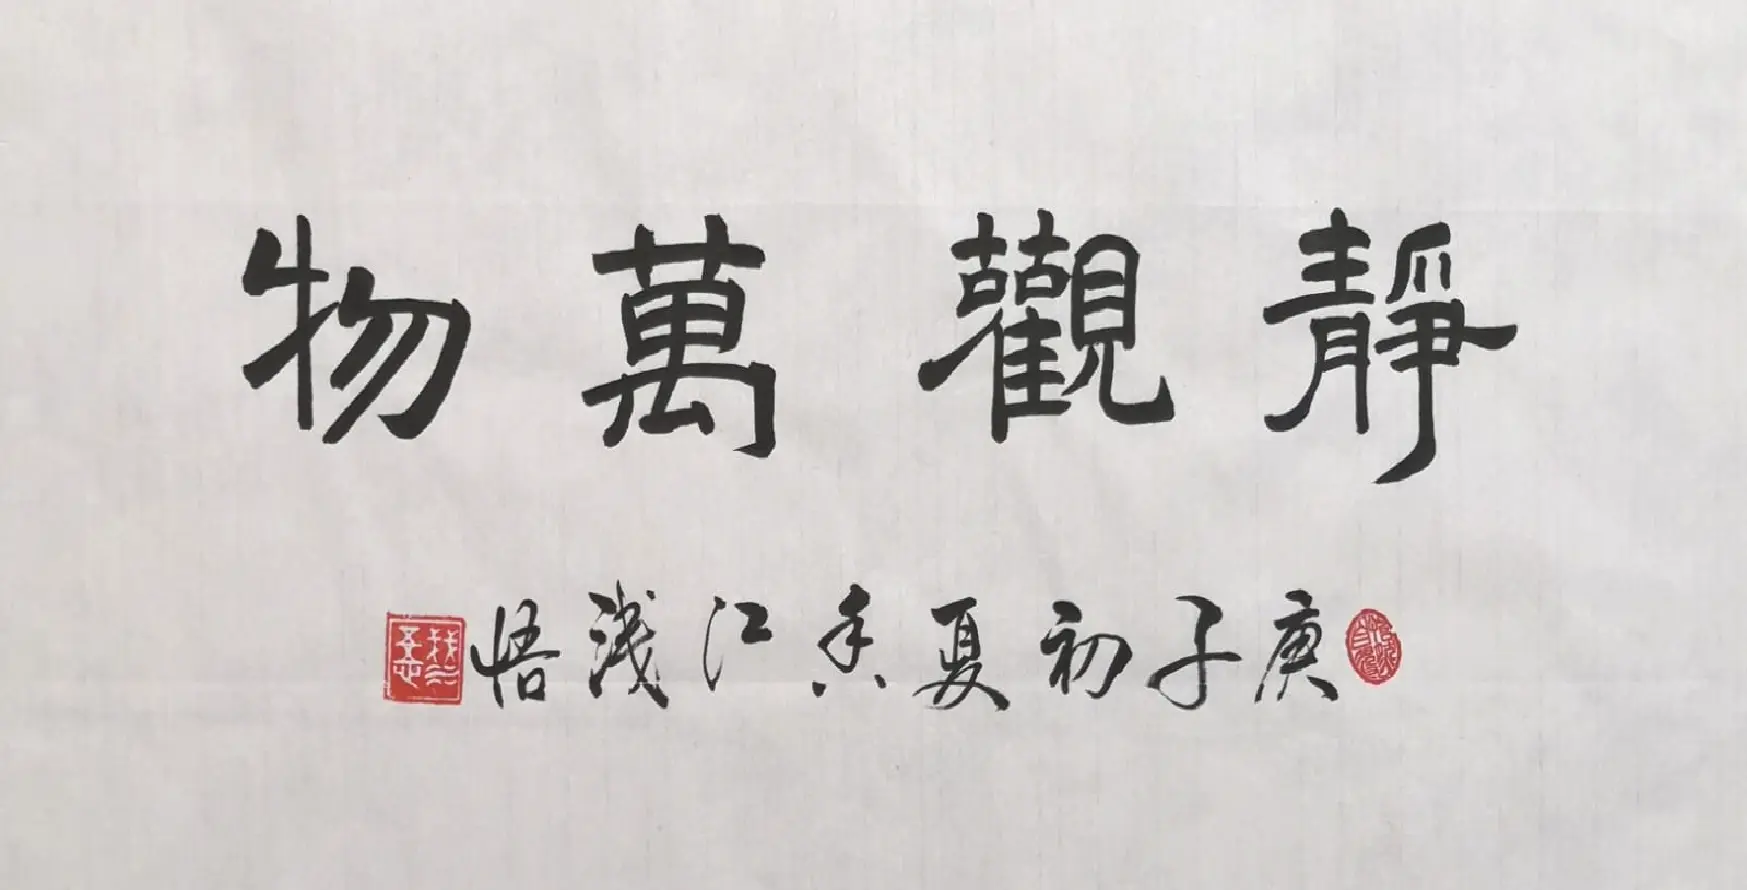 靜觀萬物
庚子初夏香江浅悟